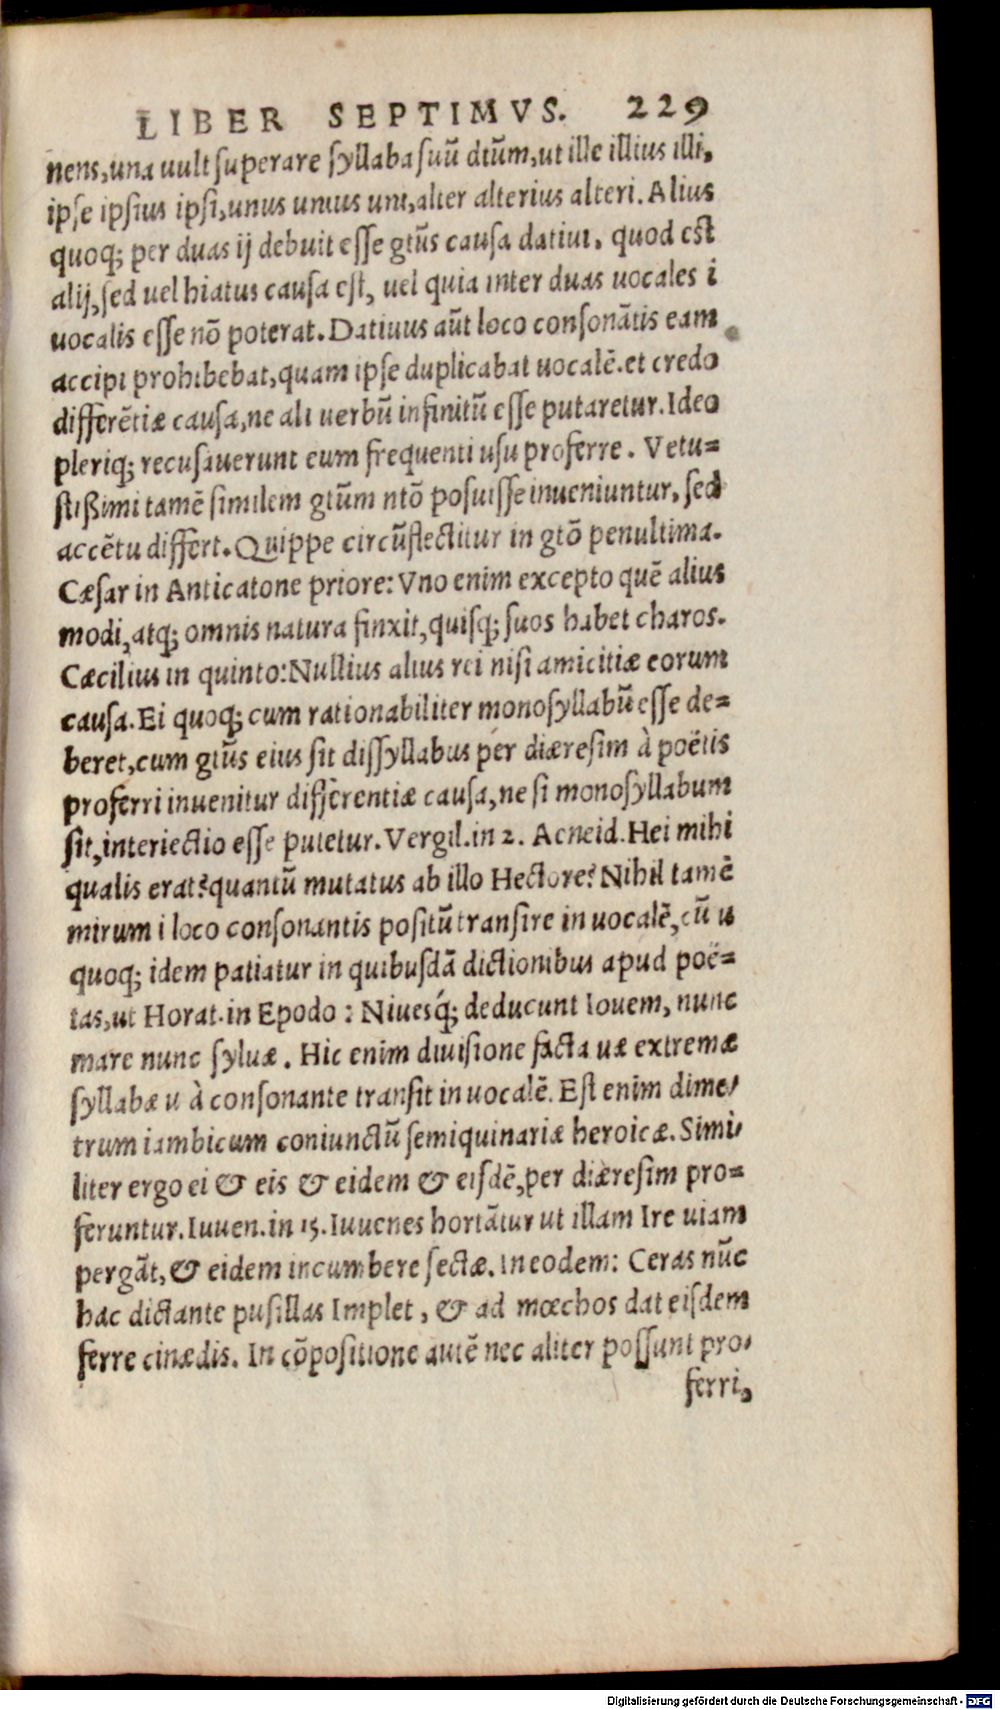 LIBER SEPTIMVS. 229
nens, una uult superare syllaba suū dtūm, ut ille illius illi,
ipse ipsius ipsi, unus unius uni, alter alterius alteri. Alius
quoq; per duas ij debuit esse gtūs causa datiui, quod est
alij, sed uel hiatus causa est, uel quia inter duas uocales i
uocalis esse nō poterat. Datiuus aūt loco consonātis eam
accipi prohibebat, quam ipse duplicabat uocalē. et credo
differētiæ causa, ne ali uerbū infinitū esse putaretur. Ideo
pleriq; recusauerunt eum frequenti usu proferre. Vetu=
stißimi tamē similem gtūm ntō posuisse inueniuntur, sed
accētu differt. Quippe circūflectitur in gtō penultima.
Cæsar in Anticatone priore: Vno enim excepto quē alius
modi, atq; omnis natura finxit, quisq; suos habet charos.
Cæcilius in quinto: Nullius alius rei nisi amicitiæ eorum
causa. Ei quoq; cum rationabiliter monosyllabū esse de=
beret, cum gtūs eius sit dissyllabus per diæresim à poëtis
proferri inuenitur differentiæ causa, ne si monosyllabum
sit, interiectio esse putetur. Vergil. in 2. Aeneid. Hei mihi
qualis erat? quantū mutatus ab illo Hectore? Nihil tamē
mirum i loco consonantis positū transire in uocalē, cū u
quoq; idem patiatur in quibusdā dictionibus apud poë=
tas, ut Horat. in Epodo: Niuesq́; deducunt Iouem, nunc
mare nunc syluæ. Hic enim diuisione facta uæ extremæ
syllabæ u à consonante transit in uocalē. Est enim dime/
trum iambicum coniunctū semiquinariæ heroicæ. Simi/
liter ergo ei & eis & eidem & eisdē, per diæresim pro=
feruntur. Iuuen. in 15. Iuuenes hortātur ut illam Ire uiam
pergāt, & eidem incumbere sectæ. In eodem: Ceras nūc
hac dictante pusillas Implet, & ad mœchos dat eisdem
ferre cinædis. In cōpositione autē nec aliter possunt pro/
ferri,
Digitalisierung gefördert durch die Deutsche Forschungsgemeinschaft - DFG